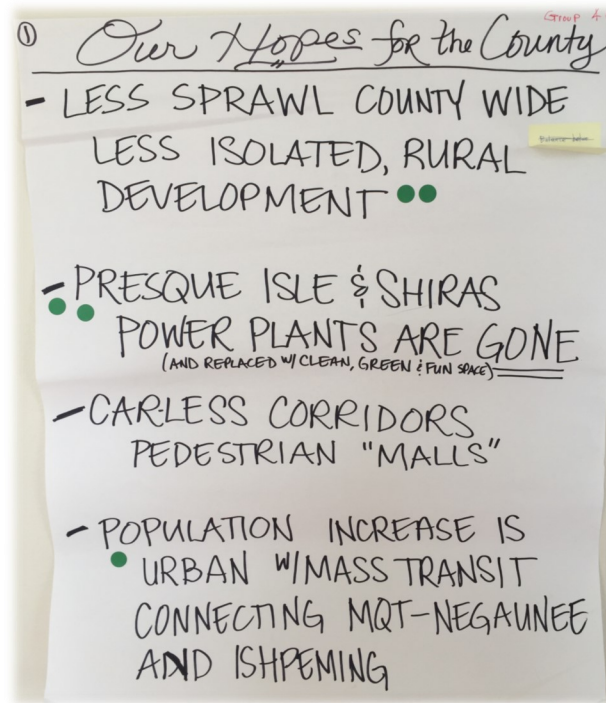 Group A
① Our Hopes for the County
- LESS SPRAWL COUNTY WIDE
LESS ISOLATED, RURAL
DEVELOPMENT
- PRESQUE ISLE & SHIRAS
POWER PLANTS ARE GONE
(AND REPLACED W/ CLEAN, GREEN & FUN SPACE)
- CAR-LESS CORRIDORS
PEDESTRIAN "MALLS"
- POPULATION INCREASE IS
URBAN W/MASS TRANSIT
CONNECTING MQT-NEGAUNEE
AND ISHPEMING